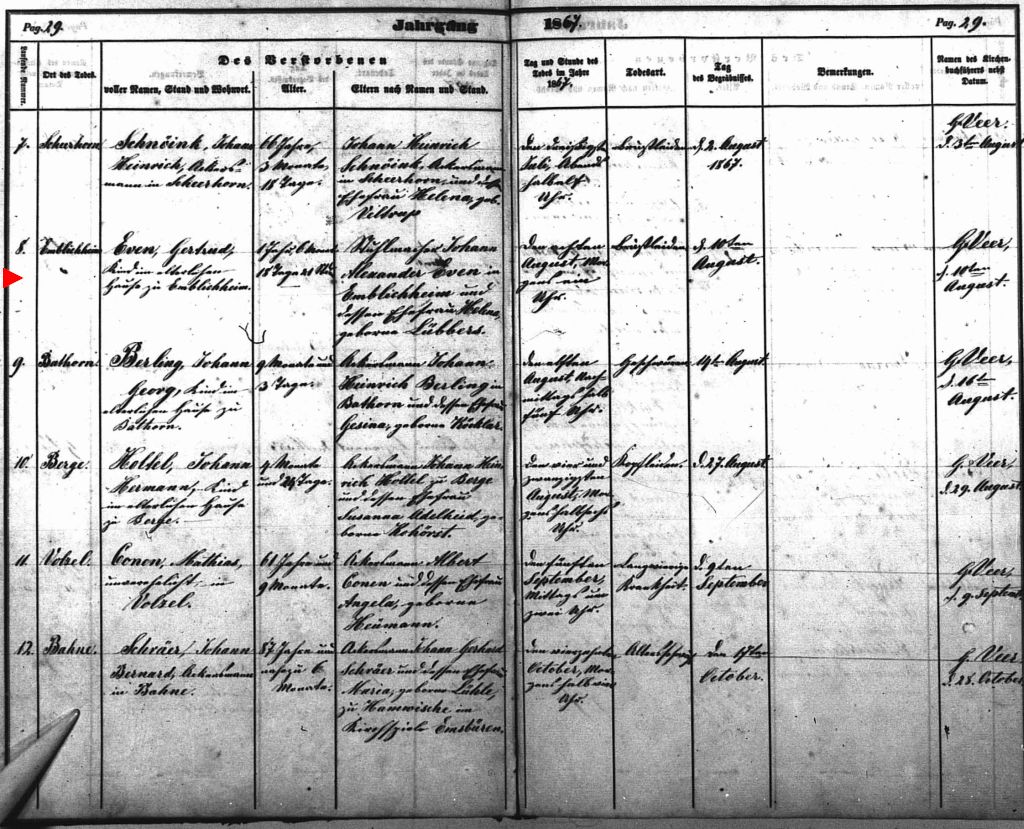 Pag. 29.
Jahrgang
1867.
Pag. 29.
Laufende Nummer.
Ort des Todes.
Des Verstorbenen
voller Namen, Stand und Wohnort.
Alter.
Eltern nach Namen und Stand.
Tag und Stunde des
Todes im Jahre
1867.
Todesart.
Tag
des Begräbnisses.
Bemerkungen.
Namen des Kirchen-
buchführers nebst
Datum.
7.
Scheerhorn
Schnöink, Johann
Heinrich, Ackers-
mann in Scheerhorn.
66 Jahre,
3 Monate,
18 Tage.
Johann Heinrich
Schnöink, Ackersmann
in Scheerhorn, und dessen
Ehefrau Helena, geb.
Viltrup
Den dreißigsten
Juli, Abends
halb elf
Uhr.
Brustleiden
d. 2. August
1867.
G Veer.
d. 3ten August
8.
Emblichheim
Even, Gertrud,
Kind im elterlichen
Hause zu Emblichheim.
1 Jahr, 6 Monate
18 Tage 21 Std.
Stuhlmacher Johann
Alexander Even in
Emblichheim und
dessen Ehefrau Helena,
geborne Lübbers.
Den achten
August, Mor-
gens ein
Uhr.
Brustleiden
d. 10ten
August.
G Veer,
d. 10ten
August.
9.
Bathorn.
Berling, Johann
Georg, Kind im
elterlichen Hause zu
Bathorn.
9 Monate und
3 Tage.
Ackersmann Johann
Heinrich Berling in
Bathorn und dessen Ehefrau
Gesina, geborne
den elften
August, Nach-
mittags halb
fünf Uhr.
Geschwüre
14te August.
G Veer,
d. 16ten
August.
10.
Berge.
Holtel, Johann
Hermann, Kind
im elterlichen Hause
zu Berge.
4 Monate
und 24 Tage.
Ackersmann Johann Hein-
rich Holtel zu Berge
und dessen Ehefrau
Susanna Adelheid, ge-
borne Hohörst.
Den vier und
zwanzigsten
August, Mor-
gens halb sechs
Uhr.
Kopfleiden.
d. 27. August
G Veer,
d. 29. August.
11.
Volzel.
Conen, Mathias,
unverehelicht, in
Volzel.
61 Jahre und
9 Monate.
Ackersmann Albert
Conen und dessen Ehefrau
Angela, geborene
Heümann.
den fünften
September,
Mittags um
zwei Uhr.
Langwierige
Krankheit.
d. 9ten
September
G Veer,
d. 9. Septemb.
12.
Bahne.
Schräer, Johann
Bernard, Ackersmann
in Bahne.
87 Jahre und
nahezu 6
Monate.
Ackersmann Johann Gerhard
Schräer und dessen Ehefrau
Maria, geborne Lühle,
zu Hamwische im
Kirchspiele Emsbüren.
den vierzehnten
October, Mor-
gens halb vier
Uhr.
Altersschwäche
den 17ten
October.
G Veer
d. 28. October